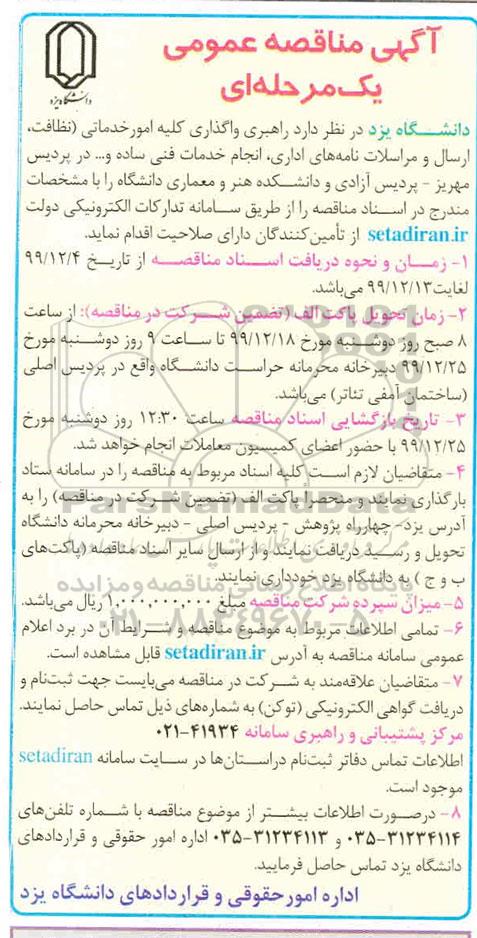 آگهی مناقصه عمومی
یک‌مرحله‌ای
دانشگاه یزد
دانشگاه یزد در نظر دارد راهبری واگذاری کلیه امورخدماتی (نظافت،
ارسال و مراسلات نامه‌های اداری، انجام خدمات فنی ساده و... در پردیس
مهریز - پردیس آزادی و دانشکده هنر و معماری دانشگاه را با مشخصات
مندرج در اسناد مناقصه را از طریق سامانه تدارکات الکترونیکی دولت
setadiran.ir از تأمین‌کنندگان دارای صلاحیت اقدام نماید.
۱- زمان و نحوه دریافت اسناد مناقصه از تاریخ ۹۹/۱۲/۴
لغایت ۹۹/۱۲/۱۳ می‌باشد.
۲- زمان تحویل پاکت الف (تضمین شرکت در مناقصه): از ساعت
۸ صبح روز دوشنبه مورخ ۹۹/۱۲/۱۸ تا ساعت ۹ روز دوشنبه مورخ
۹۹/۱۲/۲۵ دبیرخانه محرمانه حراست دانشگاه واقع در پردیس اصلی
(ساختمان آمفی تئاتر) می‌باشد.
۳- تاریخ بازگشایی اسناد مناقصه ساعت ۱۲:۳۰ روز دوشنبه مورخ
۹۹/۱۲/۲۵ با حضور اعضای کمیسیون معاملات انجام خواهد شد.
۴- متقاضیان لازم است کلیه اسناد مربوط به مناقصه را در سامانه ستاد
بارگذاری نمایند و منحصرا پاکت الف (تضمین شرکت در مناقصه) را به
آدرس یزد- چهارراه پژوهش - پردیس اصلی - دبیرخانه محرمانه دانشگاه
تحویل و رسید دریافت نمایند و از ارسال سایر اسناد مناقصه (پاکت‌های
ب و ج ) به دانشگاه یزد خودداری نمایند.
۵- میزان سپرده شرکت مناقصه مبلغ ۱,۰۰۰,۰۰۰,۰۰۰ ریال می‌باشد.
۶- تمامی اطلاعات مربوط به موضوع مناقصه و شرایط آن در برد اعلام
عمومی سامانه مناقصه به آدرس setadiran.ir قابل مشاهده است.
۷- متقاضیان علاقه‌مند به شرکت در مناقصه می‌بایست جهت ثبت‌نام و
دریافت گواهی الکترونیکی (توکن) به شماره‌های ذیل تماس حاصل نمایند.
مرکز پشتیبانی و راهبری سامانه ۴۱۹۳۴-۰۲۱
اطلاعات تماس دفاتر ثبت‌نام دراستان‌ها در سایت سامانه setadiran
موجود است.
۸- درصورت اطلاعات بیشتر از موضوع مناقصه با شماره تلفن‌های
۰۳۵-۳۱۲۳۴۱۱۴ و ۰۳۵-۳۱۲۳۴۱۱۳ اداره امور حقوقی و قراردادهای
دانشگاه یزد تماس حاصل فرمایید.
اداره امورحقوقی و قراردادهای دانشگاه یزد
ParsNamadData
پایگاه اطلاع رسانی مناقصه و مزایده
۰۲۱-۸۸۳۴۹۶۷۰-۵